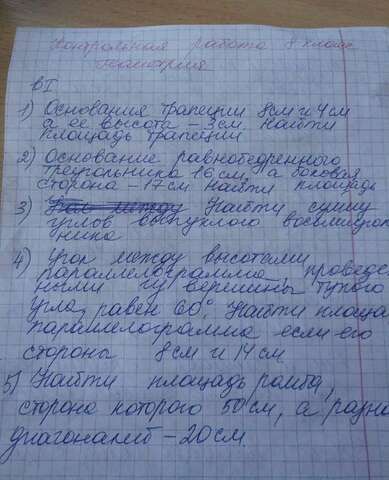 Контрольная работа 8 класс
геометрия
вI
1) Основания трапеции 8см и 4см
а ее высота – 3см. Найти
площадь трапеции
2) Основание равнобедренного
треугольника 16см, а боковая
сторона – 17см Найти площадь
3) Найти сумму
углов выпуклого восьмиуголь
ника
4) Угол между высотами
параллелограмма, проведе
ными из вершины тупого
угла, равен 60°. Найти площа
параллелограмма если его
стороны 8см и 14см
5) Найти площадь ромба,
сторона которого 50см, а разно
диагоналей – 20см.